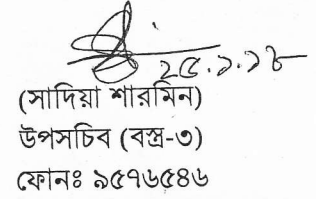 ২৫.১.১৮
(সাদিয়া শারমিন)
উপসচিব (বস্ত্র-৩)
ফোনঃ ৯৫৭৬৫৪৬